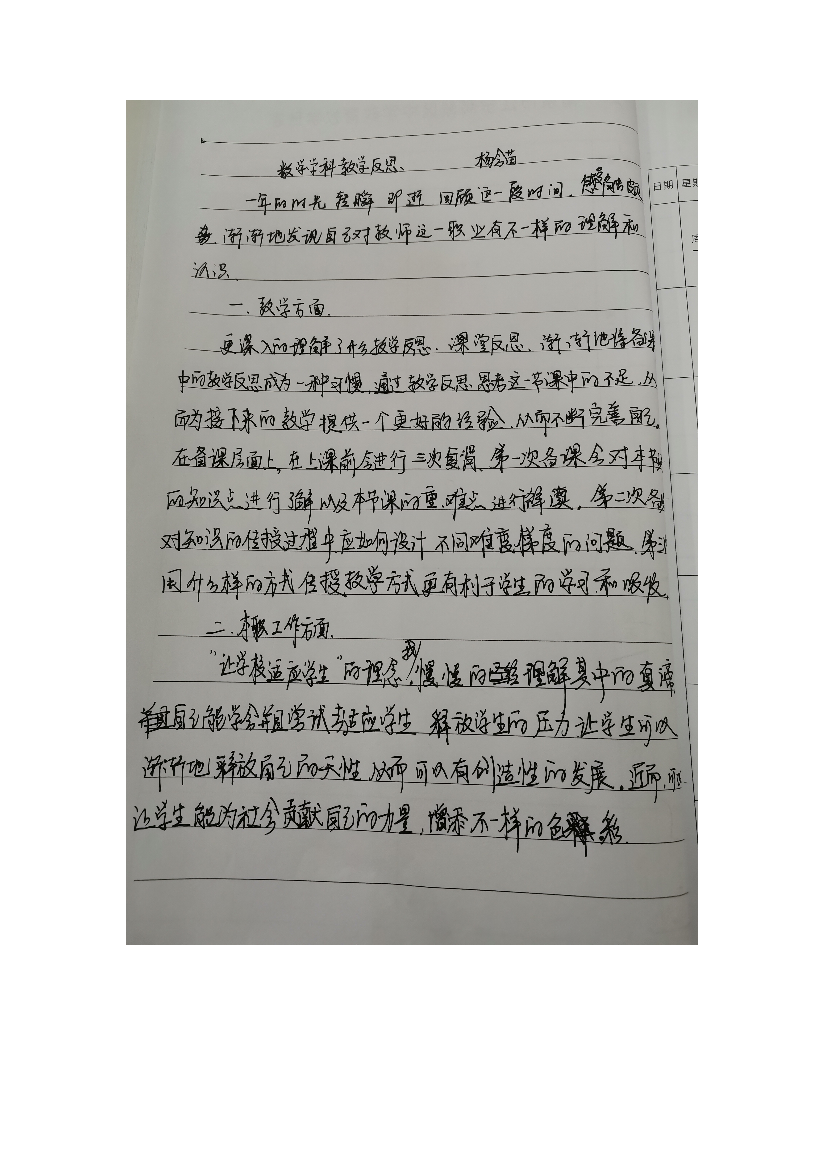 数学学科教学反思、 杨会苗
一年的时光 转瞬 即逝 回顾这一段时间，感触颇
多，渐渐地发现自己对教师这一职业有不一样的理解和
认识.
一、教学方面.
更深入的理解了什么教学反思、课堂反思，渐渐地将备课
中的教学反思成为一种习惯，通过教学反思思考这一节课中的不足，从
而为接下来的教学提供一个更好的经验，从而不断完善自己。
在备课层面上，在上课前会进行三次复备，第一次备课会对本节
的知识点进行了解以及本节课的重、难点进行解读，第二次备
对知识的传授过程中应如何设计不同难度梯度的问题，第三
用什么样的方式传授教学方式更有利于学生的学习和吸收
二、本职工作方面.
“让学校适应学生”的理念，我慢慢的理解其中的真谛
并且自己能学会并且尝试着适应学生 释放学生的压力让学生可以
渐渐地释放自己的天性，从而可以有创造性的发展，近而，
让学生能为社会贡献自己的力量，增添不一样的色彩.
日期 星期